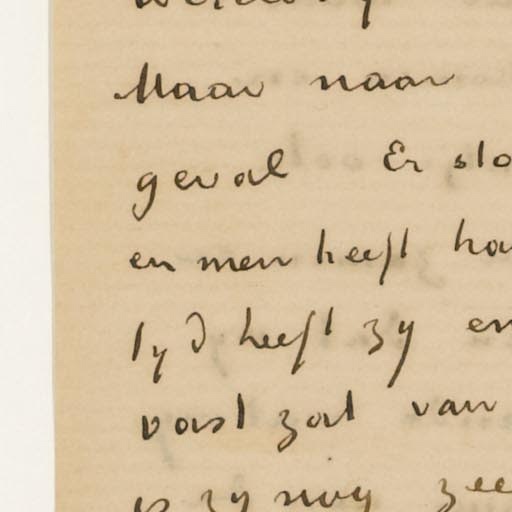 Maar naar
geval Er
en men heeft
tyd heeft zy en
vast zat van
is zy nog zee